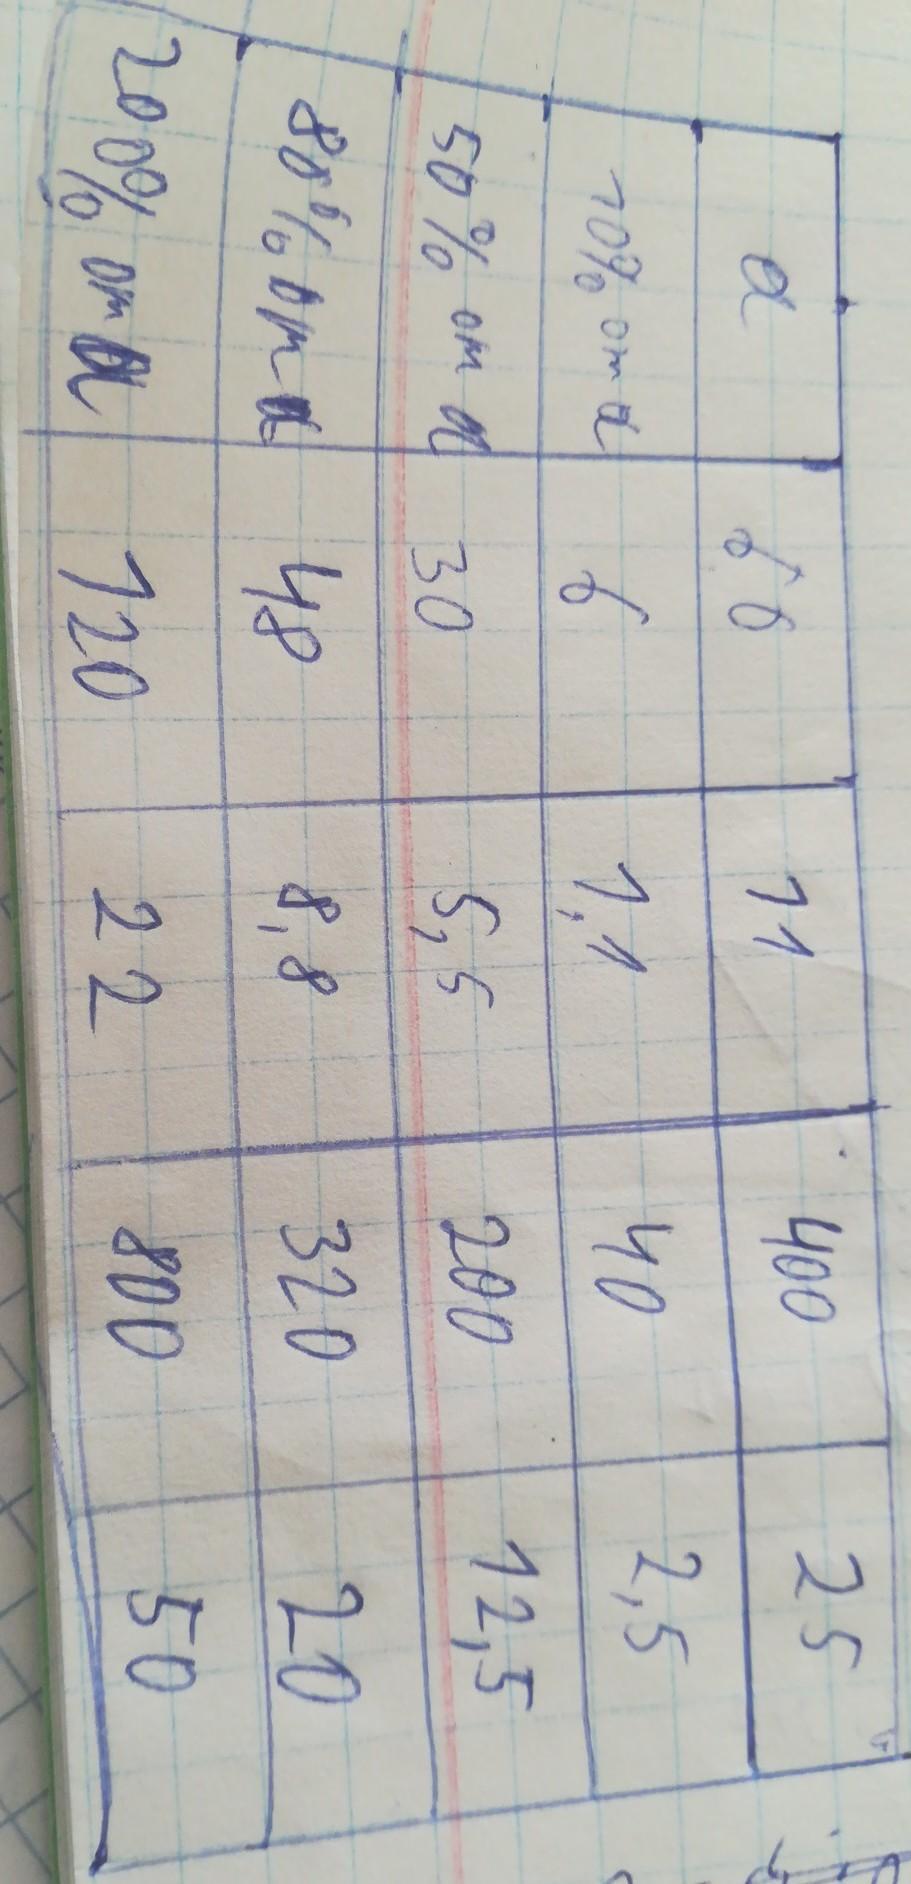 a 60 11 400 25
10% от a 6 1,1 40 2,5
50% от a 30 5,5 200 12,5
80% от a 48 8,8 320 20
200% от a 120 22 800 50